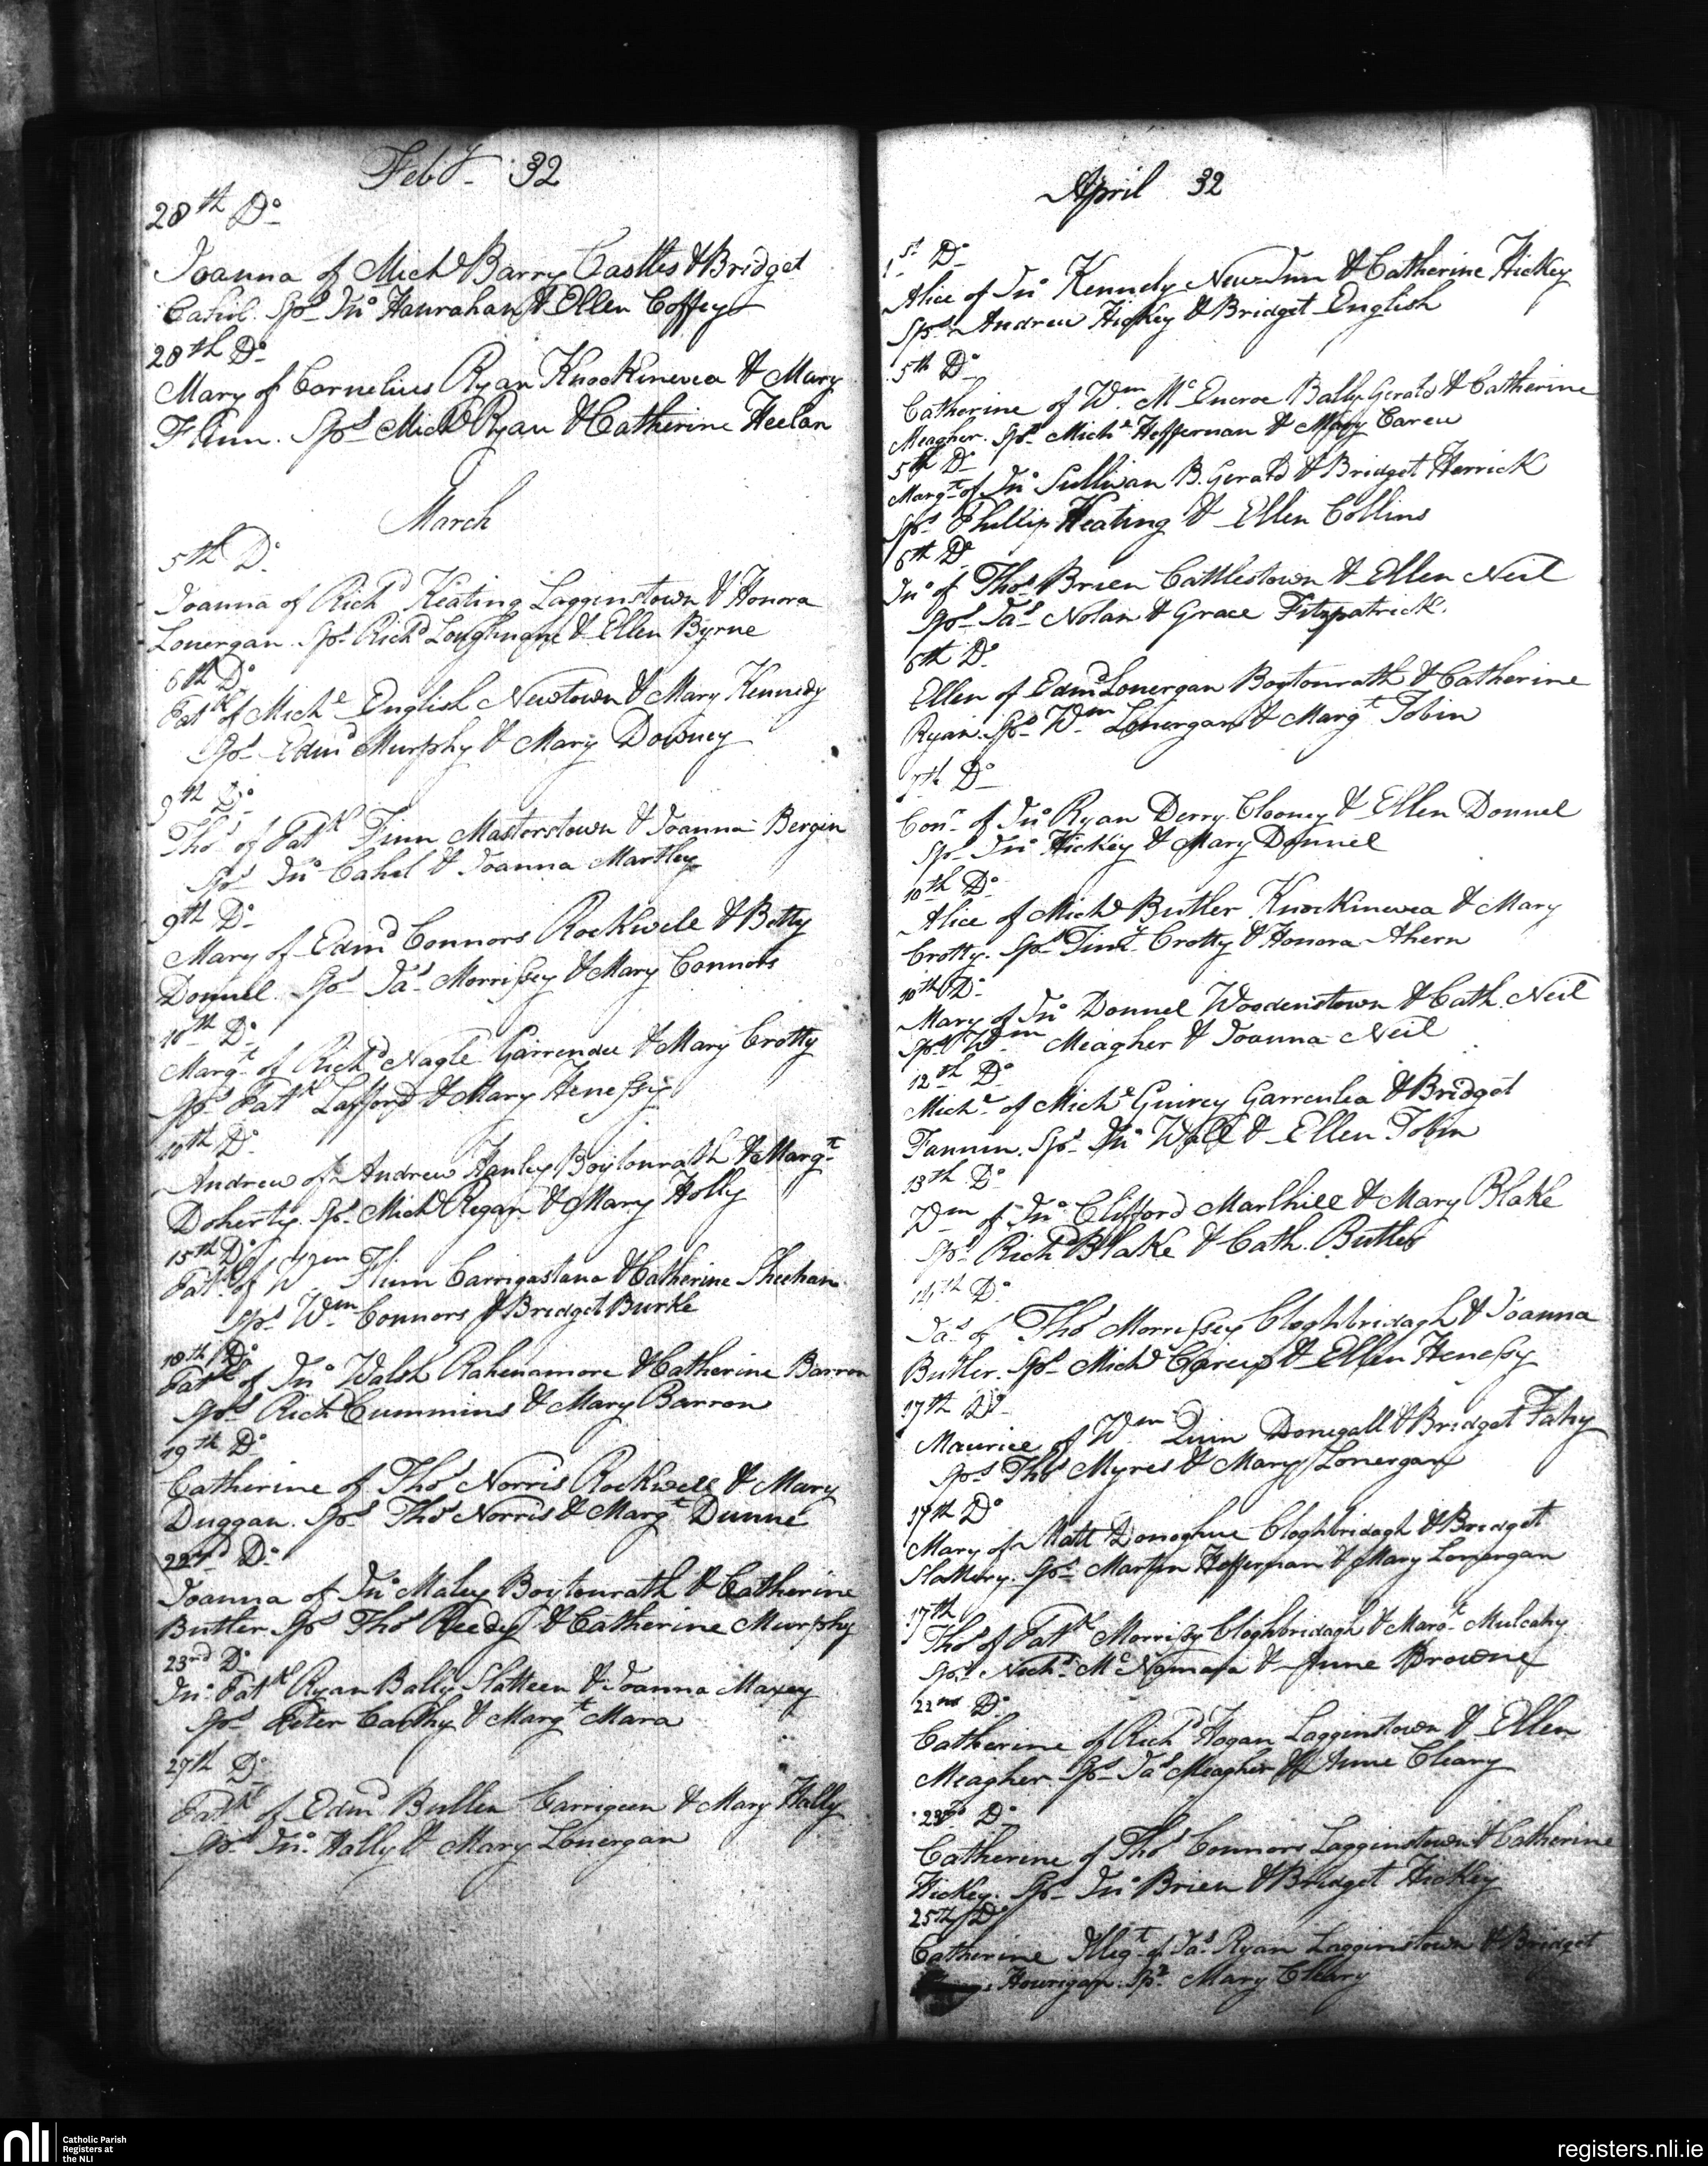 Feby 32
28th Do
Joanna of Michl Barry Castles & Bridget
Cahil. Sps Jno Hanrahan & Ellen Coffey
28th Do
Mary of Cornelius Ryan Knockinevea & Mary
Flinn. Sps Michl Ryan & Catherine Heelan
March
5th Do
Joanna of Richd Keating Lagginstown & Honora
Lonergan. Sps Richd Loughnane & Ellen Byrne
6th Do
Patk of Michl English Newtown & Mary Kennedy
Sps Edmd Murphy & Mary Downey
9th Do
Thos of Patk Finn Masterstown & Joanna Bergin
Sps Jno Cahel & Joanna Martley
9th Do
Mary of Edmd Connors Rockwell & Betty
Donnel. Sps Jas Morrissey & Mary Connors
10th Do
Margt of Richd Nagle Garrendee & Mary Crotty
Sps Patk Lafford & Mary Henessy
10th Do
Andrew of Andrew Hanley Boytonrath & Margt
Doherty. Sps Michl Regan & Mary Holly
15th Do
Patk of Wm Flinn Carrigaslana & Catherine Sheehan
Sps Wm Connors & Bridget Burke
18th Do
Patk of Jno Walsh Rahenamore & Catherine Barron
Sps Richd Cummins & Mary Barron
19th Do
Catherine of Thos Norris Rockwell & Mary
Duggan. Sps Thos Norris & Margt Dunne
22nd Do
Joanna of Jno Maley Boytonrath & Catherine
Butler Sps Thos Reedy & Catherine Murphy
23rd Do
Jno Patk Ryan Bally Slatteen & Joanna Maxey
Sps Peter Carthy & Margt Mara
27th Do
Patk of Edmd Bullen Carrigeen & Mary Hally
Sps Jno Hally & Mary Lonergan
April 32
1st Do
Alice of Jno Kennedy New Inn & Catherine Hickey
Sps Andrew Hickey & Bridget English
5th Do
Catherine of Wm McEncroe Bally Gerald & Catherine
Meagher. Sps Michl Heffernan & Mary Carew
5th Do
Margt of Jno Sullivan B. Gerald & Bridget Herrick
Sps Phillip Keating & Ellen Collins
6th Do
Jno of Thos Brien Cattlestown & Ellen Neil
Sps Jas Nolan & Grace Fitzpatrick.
6th Do
Ellen of Edmd Lonergan Boytonrath & Catherine
Ryan. Sps Wm Lonergan & Margt Tobin
7th Do
Con of Jno Ryan Derry Clooney & Ellen Donnel
Sps Jno Hickey & Mary Donnel
10th Do
Alice of Michl Butler Knockinevea & Mary
Crotty. Sps Timy Crotty & Honora Ahern
10th Do
Mary of Jno Donnel Woodenstown & Cath. Neil
Sps Wm Meagher & Joanna Neil
12th Do
Michl of Michl Guirey Garrenlea & Bridget
Fannin. Sps Jno Wall & Ellen Tobin
13th Do
Wm of Jno Clifford Marlhill & Mary Blake
Sps Richd Blake & Cath. Butler
14th Do
Jas of Thos Morrissey Cloghbridagh & Joanna
Butler. Sps Michl Carew & Ellen Henessy
17th Do
Maurice of Wm Quin Donegall & Bridget Fahy
Sps Thos Myres & Mary Lonergan
17th Do
Mary of Matt Donoghue Cloghbridagh & Bridget
Slattery. Sps Martin Heffernan & Mary Lonergan
17th
Thos of Patk Morrissy Cloghbridagh & Margt Mulcahy
Sps Nichs McNamara & Anne Browne
22nd Do
Catherine of Richd Hogan Lagginstown & Ellen
Meagher Sps Jas Meagher & Anne Cleary
23rd Do
Catherine of Thos Connors Lagginstown & Catherine
Hickey. Sps Jno Brien & Bridget Hickey
25th Do
Catherine Illegt of Jas Ryan Lagginstown & Bridget
Hourigan. Spr Mary Cleary
nli
Catholic Parish
Registers at
the NLI
registers.nli.ie